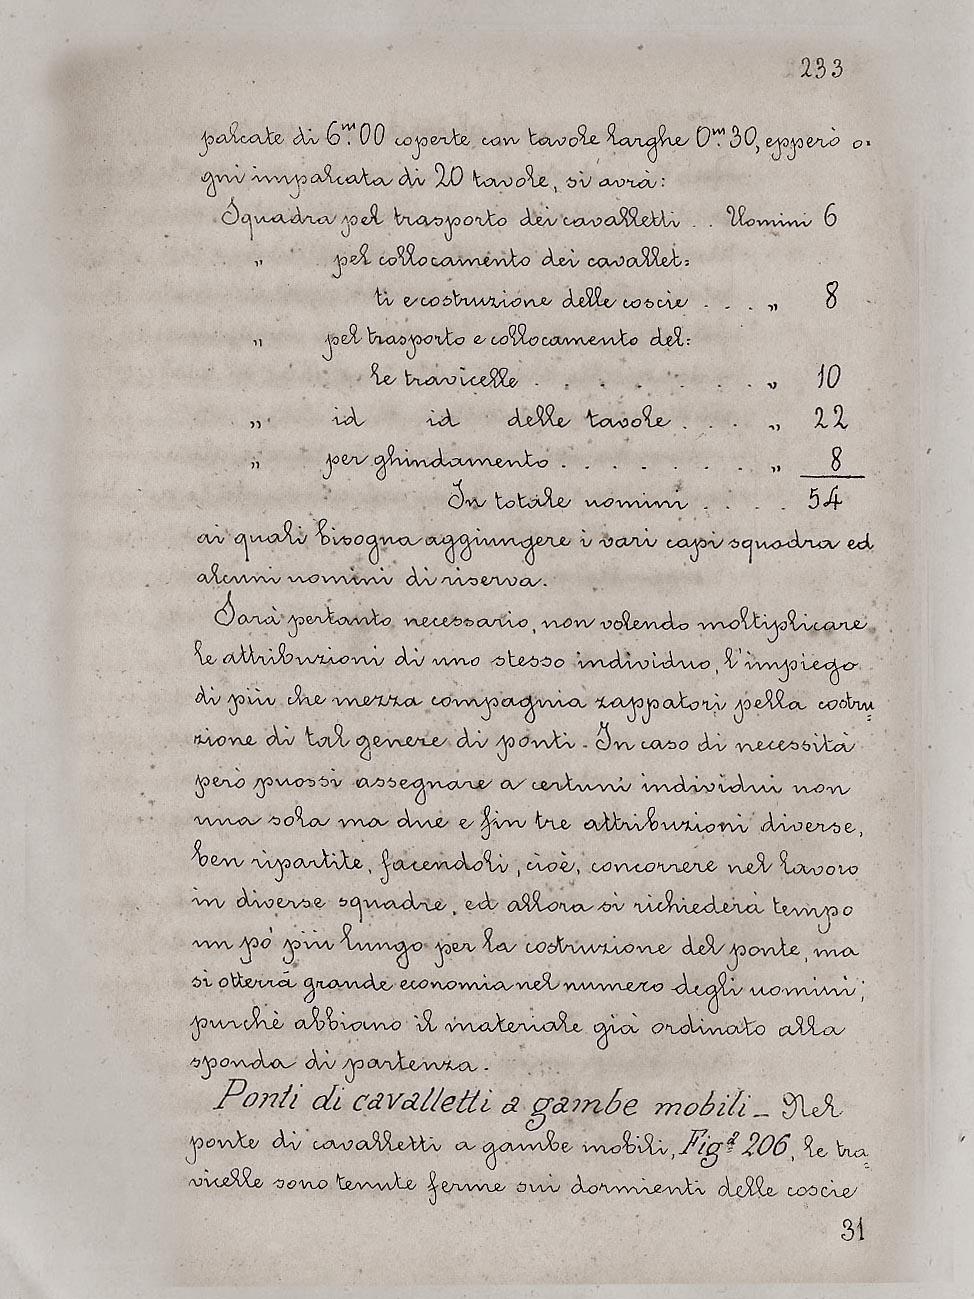 233
palcate di 6.ᵐ00 coperte con tavole larghe 0.ᵐ30, epperò o=
gni impalcata di 20 tavole, si avrà:
Squadra pel trasporto dei cavalletti . . Uomini 6
„ pel collocamento dei cavallet=
ti e costruzione delle coscie . . . „ 8
„ pel trasporto e collocamento del=
le travicelle . . . . . . . . „ 10
„ id id delle tavole . . . „ 22
„ per ghindamento . . . . . . . „ 8
In totale uomini . . . . 54
ai quali bisogna aggiungere i vari capi squadra ed
alcuni uomini di riserva.
Sarà pertanto necessario, non volendo moltiplicare
le attribuzioni di uno stesso individuo, l'impiego
di più che mezza compagnia zappatori pella costru=
zione di tal genere di ponti. In caso di necessità
però puossi assegnare a certuni individui non
una sola ma due e fin tre attribuzioni diverse,
ben ripartite, facendoli, cioè, concorrere nel lavoro
in diverse squadre, ed allora si richiederà tempo
un pó più lungo per la costruzione del ponte, ma
si otterrà grande economia nel numero degli uomini;
purchè abbiano il materiale già ordinato alla
sponda di partenza.
Ponti di cavalletti a gambe mobili _ Nel
ponte di cavalletti a gambe mobili, Figᵃ 206, le tra=
vicelle sono tenute ferme sui dormienti delle coscie
31